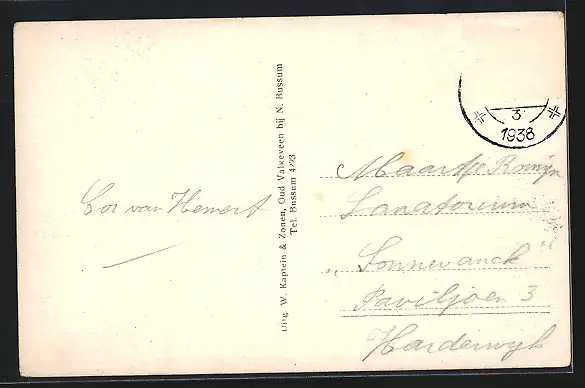 Cor van Hemert
Uitg. W. Kaptein & Zonen, Oud Valkeveen bij N. Bussum
Tel. Bussum 4723
3
1938
Maartje Romijn
Sanatorium
„Sonnevanck"
Paviljoen 3
Harderwijk